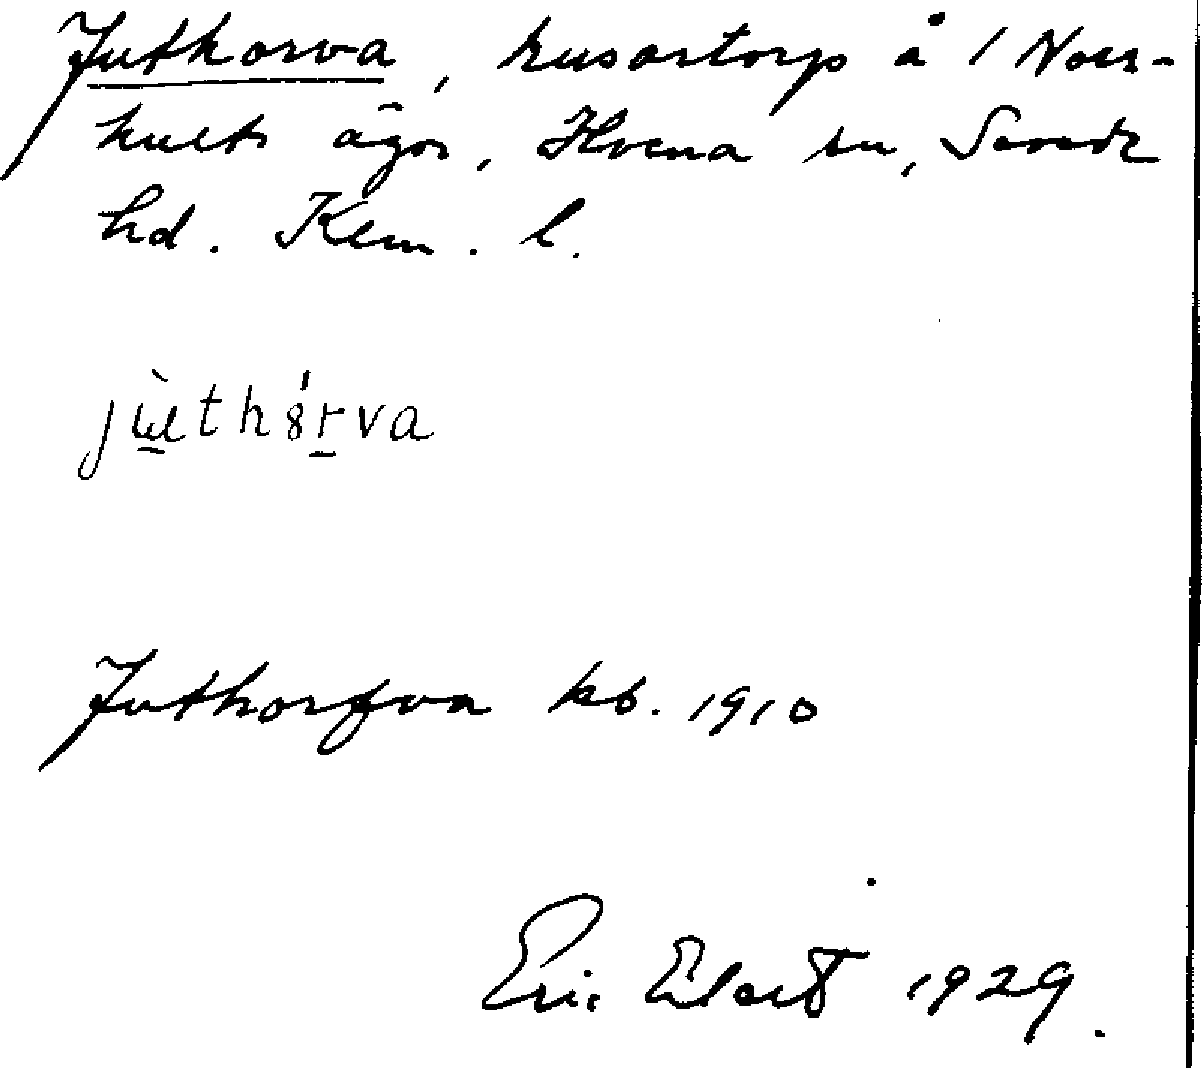 Juthorva, husartorp å 1 Norr-
hults ägor, Hvena sn, Sevede
hd. Kalm. l.
jùthó̱rva
Juthorfva kb. 1910
Eric Elert 1929.